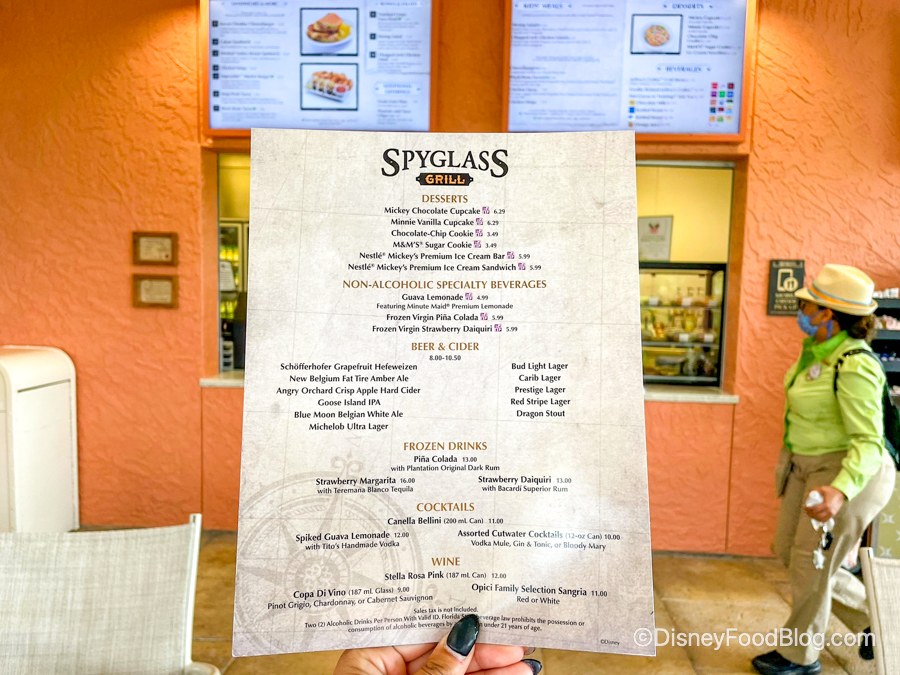 DESSERTS
BEVERAGES
SPYGLASS
GRILL
DESSERTS
Mickey Chocolate Cupcake 6.29
Minnie Vanilla Cupcake 6.29
Chocolate-Chip Cookie 3.49
M&M'S® Sugar Cookie 3.49
Nestlé® Mickey's Premium Ice Cream Bar 5.99
Nestlé® Mickey's Premium Ice Cream Sandwich 5.99
NON-ALCOHOLIC SPECIALTY BEVERAGES
Guava Lemonade 4.99
Featuring Minute Maid® Premium Lemonade
Frozen Virgin Piña Colada 5.99
Frozen Virgin Strawberry Daiquiri 5.99
BEER & CIDER
8.00-10.50
Schöfferhofer Grapefruit Hefeweizen
New Belgium Fat Tire Amber Ale
Angry Orchard Crisp Apple Hard Cider
Goose Island IPA
Blue Moon Belgian White Ale
Michelob Ultra Lager
Bud Light Lager
Carib Lager
Prestige Lager
Red Stripe Lager
Dragon Stout
FROZEN DRINKS
Piña Colada 13.00
with Plantation Original Dark Rum
Strawberry Margarita 16.00
with Teremana Blanco Tequila
Strawberry Daiquiri 13.00
with Bacardí Superior Rum
COCKTAILS
Canella Bellini (200 mL Can) 11.00
Spiked Guava Lemonade 12.00
with Tito's Handmade Vodka
Assorted Cutwater Cocktails (12-oz Can) 10.00
Vodka Mule, Gin & Tonic, or Bloody Mary
WINE
Stella Rosa Pink (187 mL Can) 12.00
Copa Di Vino (187 mL Glass) 9.00
Pinot Grigio, Chardonnay, or Cabernet Sauvignon
Opici Family Selection Sangria 11.00
Red or White
Sales tax is not included.
Two (2) Alcoholic Drinks Per Person With Valid ID. Florida State Beverage law prohibits the possession or
consumption of alcoholic beverages by under 21 years of age.
©Disney
©DisneyFoodBlog.com